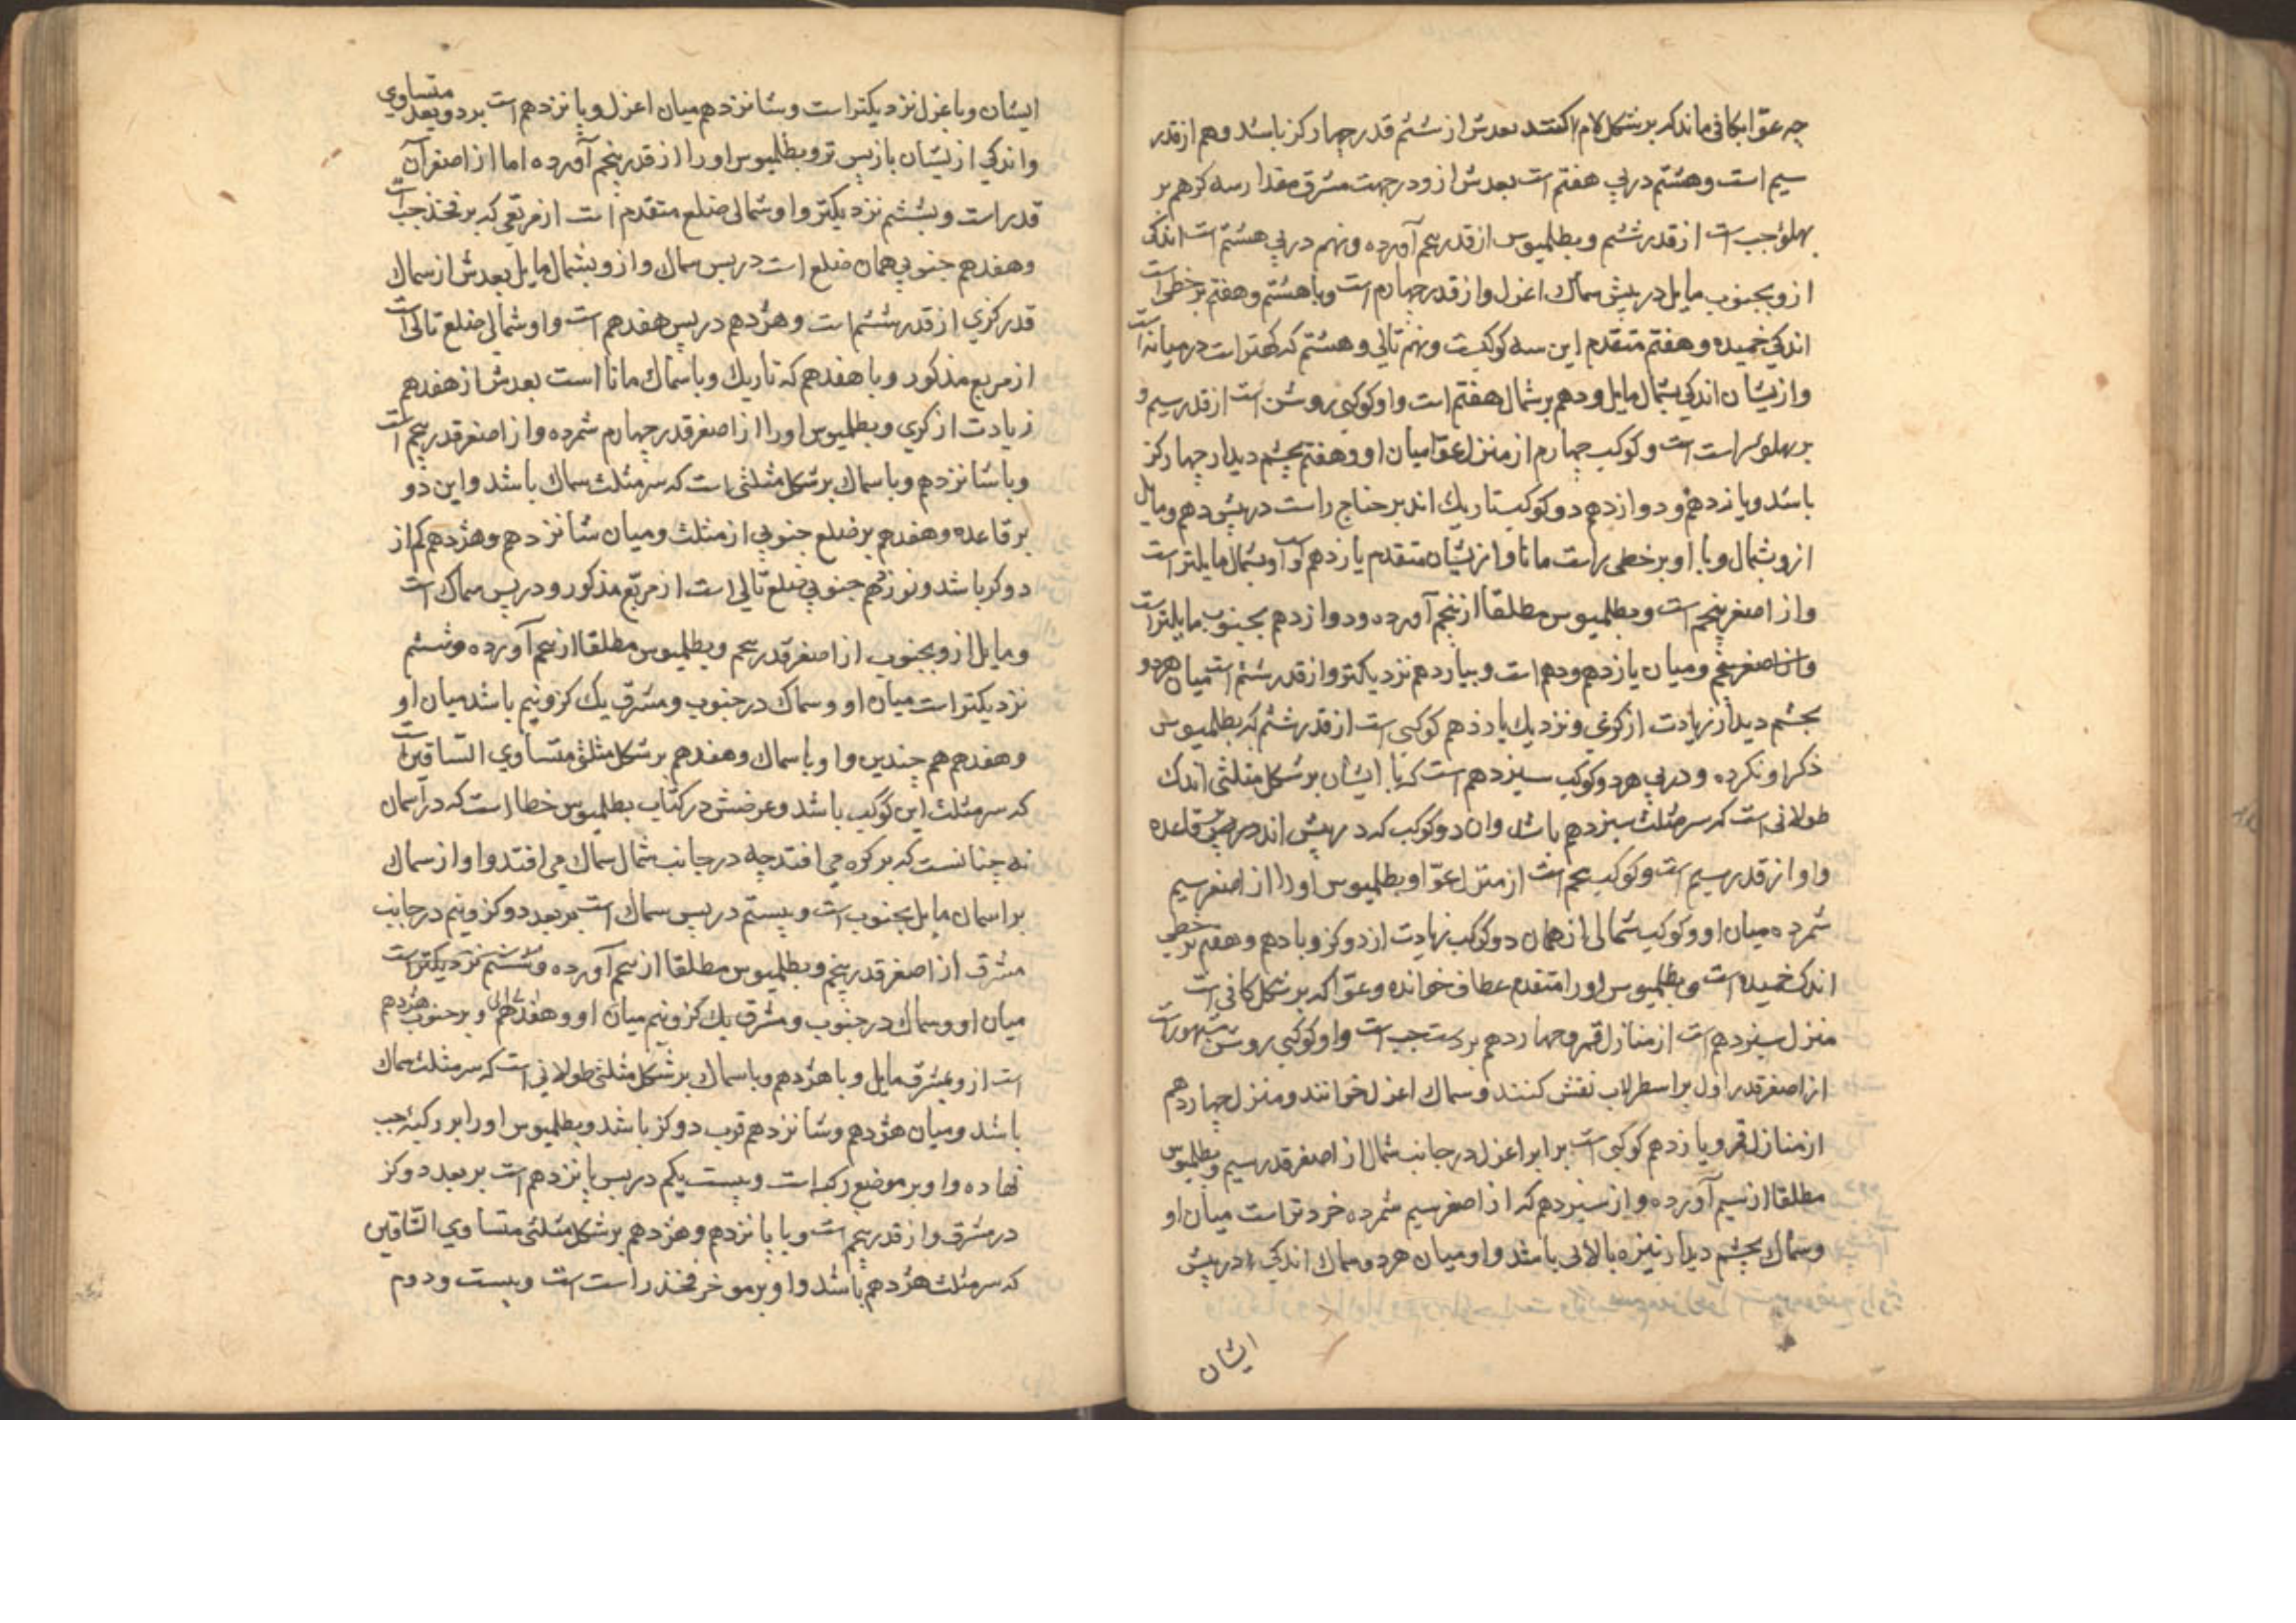 چه عوّا بکافی ماند که بر شکل لام اکفتد بعدش از ششم قدر چهار کز باشد و هم از قدر
سیم است و هشتم در پی هفتم است بعدش ازو در جهت مشرق مقدار سه کز هم بر
پهلوٴ چب است از قدر ششم و بطلمیوس از قدر پنجم آورده و نهم در پی هشتم است اندکی
ازو بجنوب مایل در پیش سماک اعزل و از قدر چهارم است و با هشتم و هفتم بر خطی است
اندکی خمیده و هفتم متقدم این سه کوکبست و نهم تالی و هشتم که کهتر است در میانه است
و ازیشان اندکی بشمال مایل و دهم بر شمال هفتم است و او کوکبی روشن است از قدر سیم و
بر پهلوٴ راست است و کوکب چهارم از منزل عوّا میان او و هفتم بچشم دیدار چهار کز
باشد و یازدهم و دوازدهم دو کوکب تاریک اند بر جناح راست در پیش دهم و مایل
ازو بشمال و با او بر خطی راست مانا و ازیشان متقدم یازدهم است و او بشمال مایلتر است
و از اصغر پنجم است و بطلمیوس مطلقا از پنجم آورده و دوازدهم بجنوب مایلتر است
و از اصغر پنجم و میان یازدهم و دهم است و بیازدهم نزدیکتر و از قدر ششم است میان هر دو
بچشم دیدار زیادت از کزی و نزدیک یازدهم کوکبی است از قدر ششم که بطلمیوس
ذکر او نکرده و در پی هر دو کوکب سیزدهم است که با ایشان بر شکل مثلثی اندک
طولانی است که سر مثلث سیزدهم باشد و ان دو کوکب که در پیش اند بر قاعده
و او از قدر سیم است و کوکب پنجم است از منزل عوّا و بطلمیوس اورا از اصغر سیم
شمرده میان او و کوکب شمالی از همان دو کوکب زیادت از دو کز و با دهم و هفتم بر خطی
اندک خمیده است و بطلمیوس اورا متقدم عطاف خوانده و عوّا که بر شکل کافی است
منزل سیزدهم است از منازل قمر و چهاردهم بر دست چب است و او کوکبی روشن مشهور است
از اصغر قدر اول بر اسطرلاب نقش کنند و سماک اعزل خوانند و منزل چهاردهم
از منازل قمر و پانزدهم کوکبی است برابر اعزل در جانب شمال از اصغر قدر سیم و بطلمیوس
مطلقا از سیم آورده و از سیزدهم که از اصغر سیم شمرده خردتر است میان او
و سماک بچشم دیدار نیزه بالائی باشد و او میان هر دو سماک اندکی در پیش
ایشان
ایشان و باعزل نزدیکتر است و شانزدهم میان اعزل و پانزدهم است بر دو بعد متساوی
و اندکی ازیشان بازپس تر و بطلمیوس اورا از قدر پنجم آورده اما از اصغر آن
قدر است و بششم نزدیکتر و او شمالی ضلع متقدم است از مربعی که بر فخذ چب است
و هفدهم جنوبی همان ضلع است در پس سماک و ازو بشمال مایل بعدش از سماک
قدر کزی از قدر ششم است و هژدهم در پس هفدهم است و او شمالی ضلع تالی است
از مربع مذکور و با هفدهم که تاریک و با سماک مانا است بعدش از هفدهم
زیادت از کزی و بطلمیوس اورا از اصغر قدر چهارم شمرده و از اصغر قدر پنجم است
و با شانزدهم و با سماک بر شکل مثلثی است که سر مثلث سماک باشد و این دو
بر قاعده و هفدهم بر ضلع جنوبی از مثلث و میان شانزدهم و هژدهم کم از
دو کز باشد و نوزدهم جنوبی ضلع تالی است از مربع مذکور و در پس سماک است
و مایل ازو بجنوب از اصغر قدر پنجم و بطلمیوس مطلقا از پنجم آورده و ششم
نزدیکتر است میان او و سماک در جنوب و مشرق یک کز و نیم باشد میان او
و هفدهم هم چندین و او با سماک و هفدهم بر شکل مثلثی متساوی الساقین است
که سر مثلث این کوکب باشد و عرضش در کتاب بطلمیوس خطا است که در آسمان
نه چنانست که بر کره می افتد چه در جانب شمال سماک می افتد و او از سماک
بر اسمان مایل بجنوب است و بیستم در پس سماک است بر بعد دو کز و نیم در جانب
مشرق از اصغر قدر پنجم و بطلمیوس مطلقا از پنجم آورده و بششم نزدیکتر است
میان او و سماک در جنوب و مشرق یک کز و نیم میان او و هفدهم و بر جنوب هژدهم
است ازو بمشرق مایل و با هژدهم و با سماک بر شکل مثلثی طولانی است که سر مثلث سماک
باشد و میان هژدهم و شانزدهم قرب دو کز باشد و بطلمیوس اورا بر رکبهٔ چب
نهاده و او بر موضع رکبه است و بیست یکم در پس پانزدهم است بر بعد دو کز
در مشرق و از قدر پنجم است و با پانزدهم و هژدهم بر شکل مثلثی متساوی الساقین
که سر مثلث هژدهم باشد و او بر موخر فخذ راست است و بیست و دوم